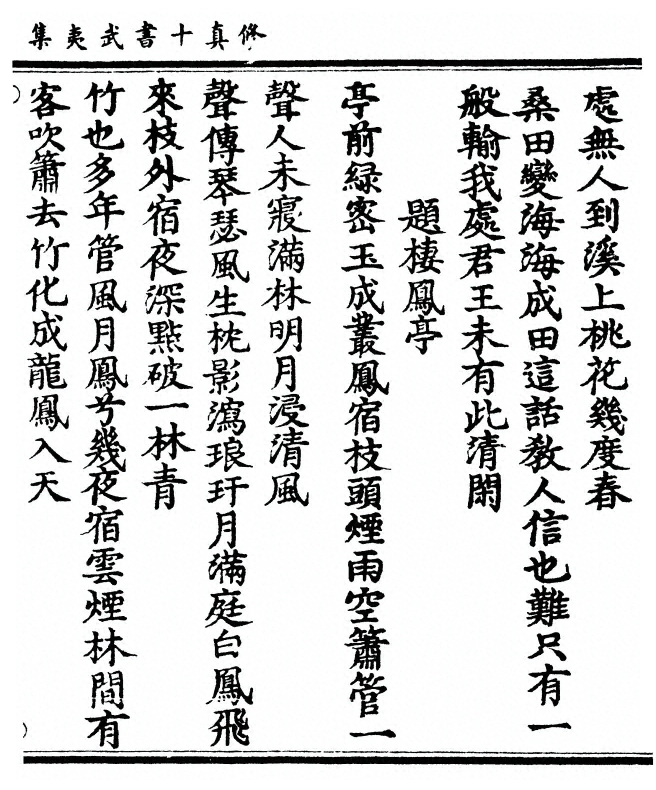 修真十書武夷集
處無人到溪上桃花幾度春
桑田變海海成田這話教人信也難只有一
般輸我處君王未有此清閑
題棲鳳亭
亭前綠密玉成叢鳳宿枝頭煙雨空簫管一
聲人未寢滿林明月浸清風
聲傳琴瑟風生枕影瀉琅玕月滿庭白鳳飛
來枝外宿夜深點破一林青
竹也多年管風月鳳兮幾夜宿雲煙林間有
客吹簫去竹化成龍鳳入天